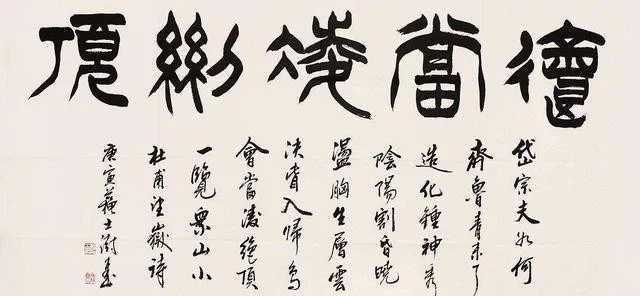 會當凌絕頂
岱宗夫如何
齊魯青未了
造化鍾神秀
陰陽割昏曉
盪胸生層雲
決眥入歸鳥
會當凌絕頂
一覽眾山小
杜甫望嶽詩
庚寅蘇士澍書